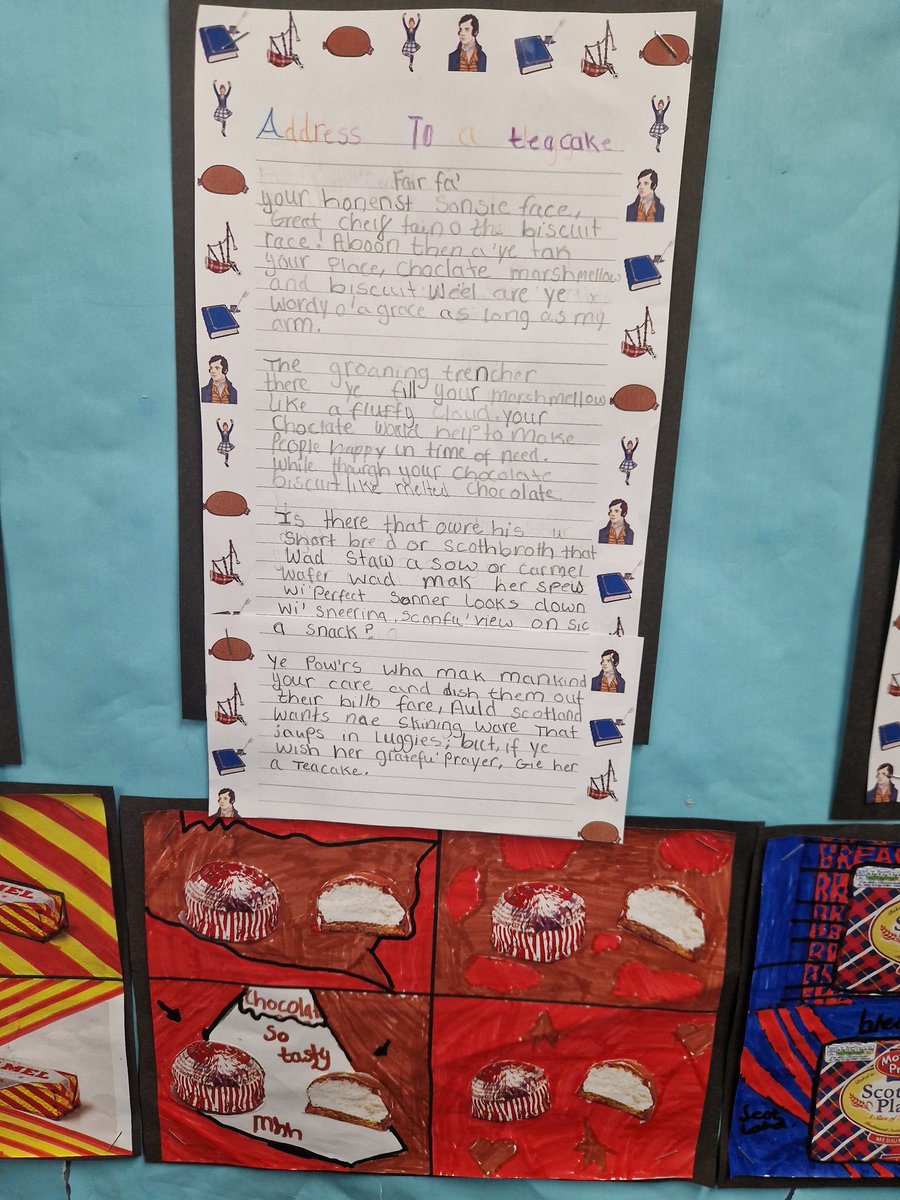 Address To a teacake
Fair fa'
your honenst Sonsie face,
Great, cheif tain o the biscuit
race! Aboon them a'ye tak
your Place, Choclate marshmellow
and biscuit Weel are ye
wordy o'a grace as long as my
arm.
The groaning trencher
there ye fill your marshmellow
Like a fluffy cloud. your
Choclate would help to make
People happy in time of need.
While though your Chocolate
biscuit like melted Chocolate.
Is there that owre his
Short bread or scothbroth that
Wad staw a sow or carmel
wafer wad mak her spew
Wi' Perfect Sonner looks down
Wi' sneering, sconfu'view on sic
a snack?
Ye Pow'rs wha mak mankind
your care and dish them out
their billo fare, Auld Scotland
wants nae skining ware That
jaups in Luggies; but, if ye
wish her gratefu'prayer, Gie her
a Teacake.
MEL
MEL
Chocolat
So
tasty
Mhh
BREAD
Scot
Land
Mo
Pr
Sco
Pla
MEDIU